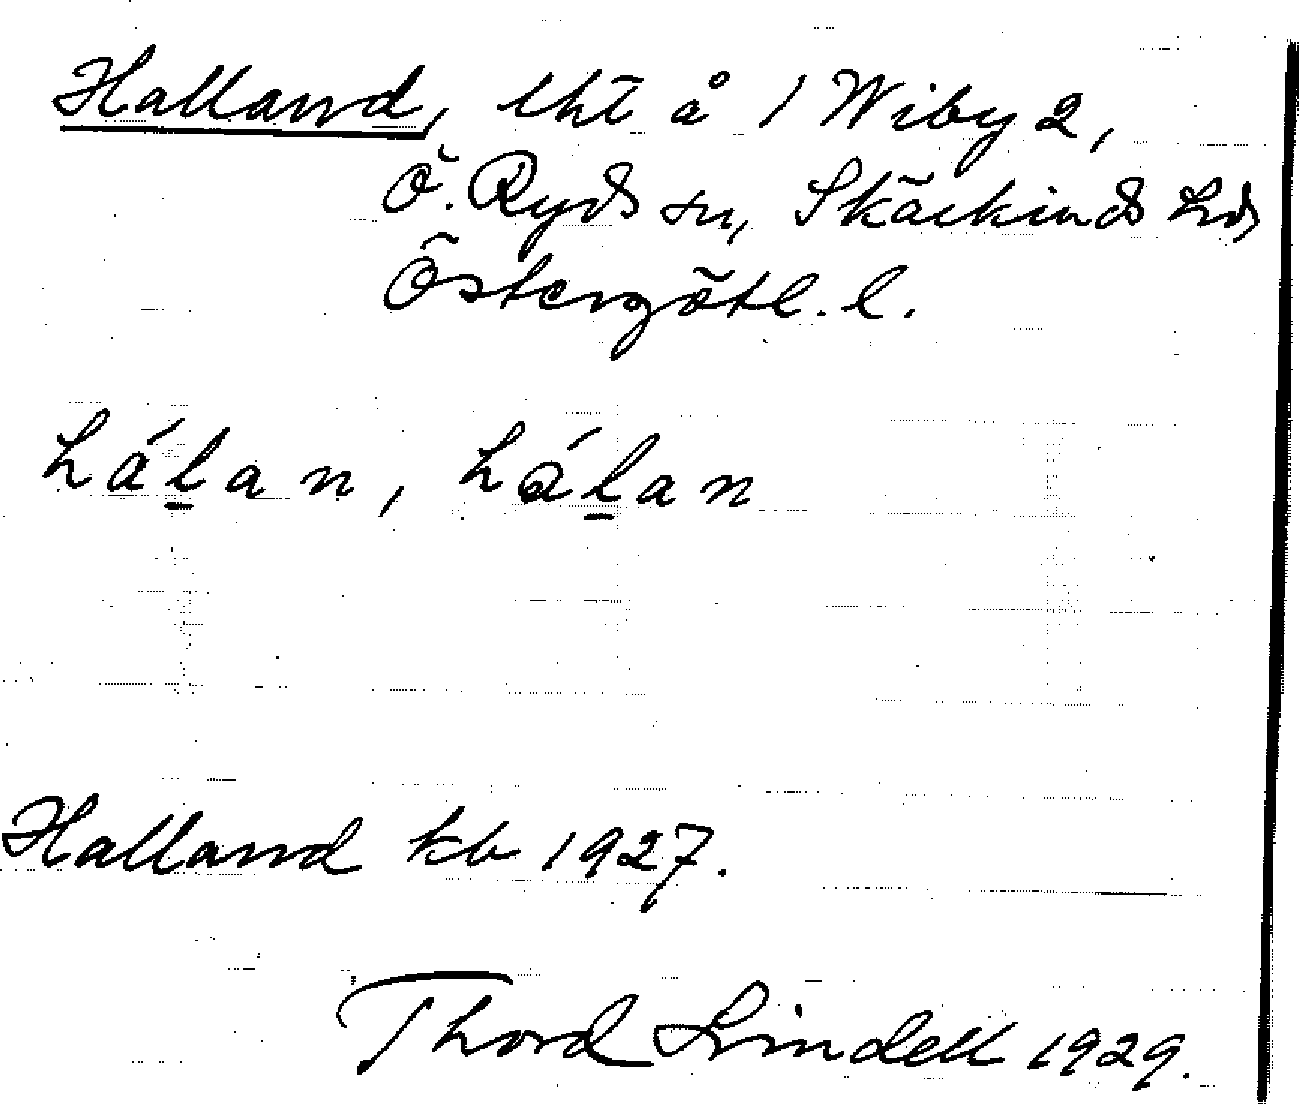 Halland, lht å 1 Wiby 2,
Ö. Ryds sn, Skärkinds hd,
Östergötl. l.
há̱lan, hɑ̱́lan
Halland kb 1927.
Thord Lindell 1929.